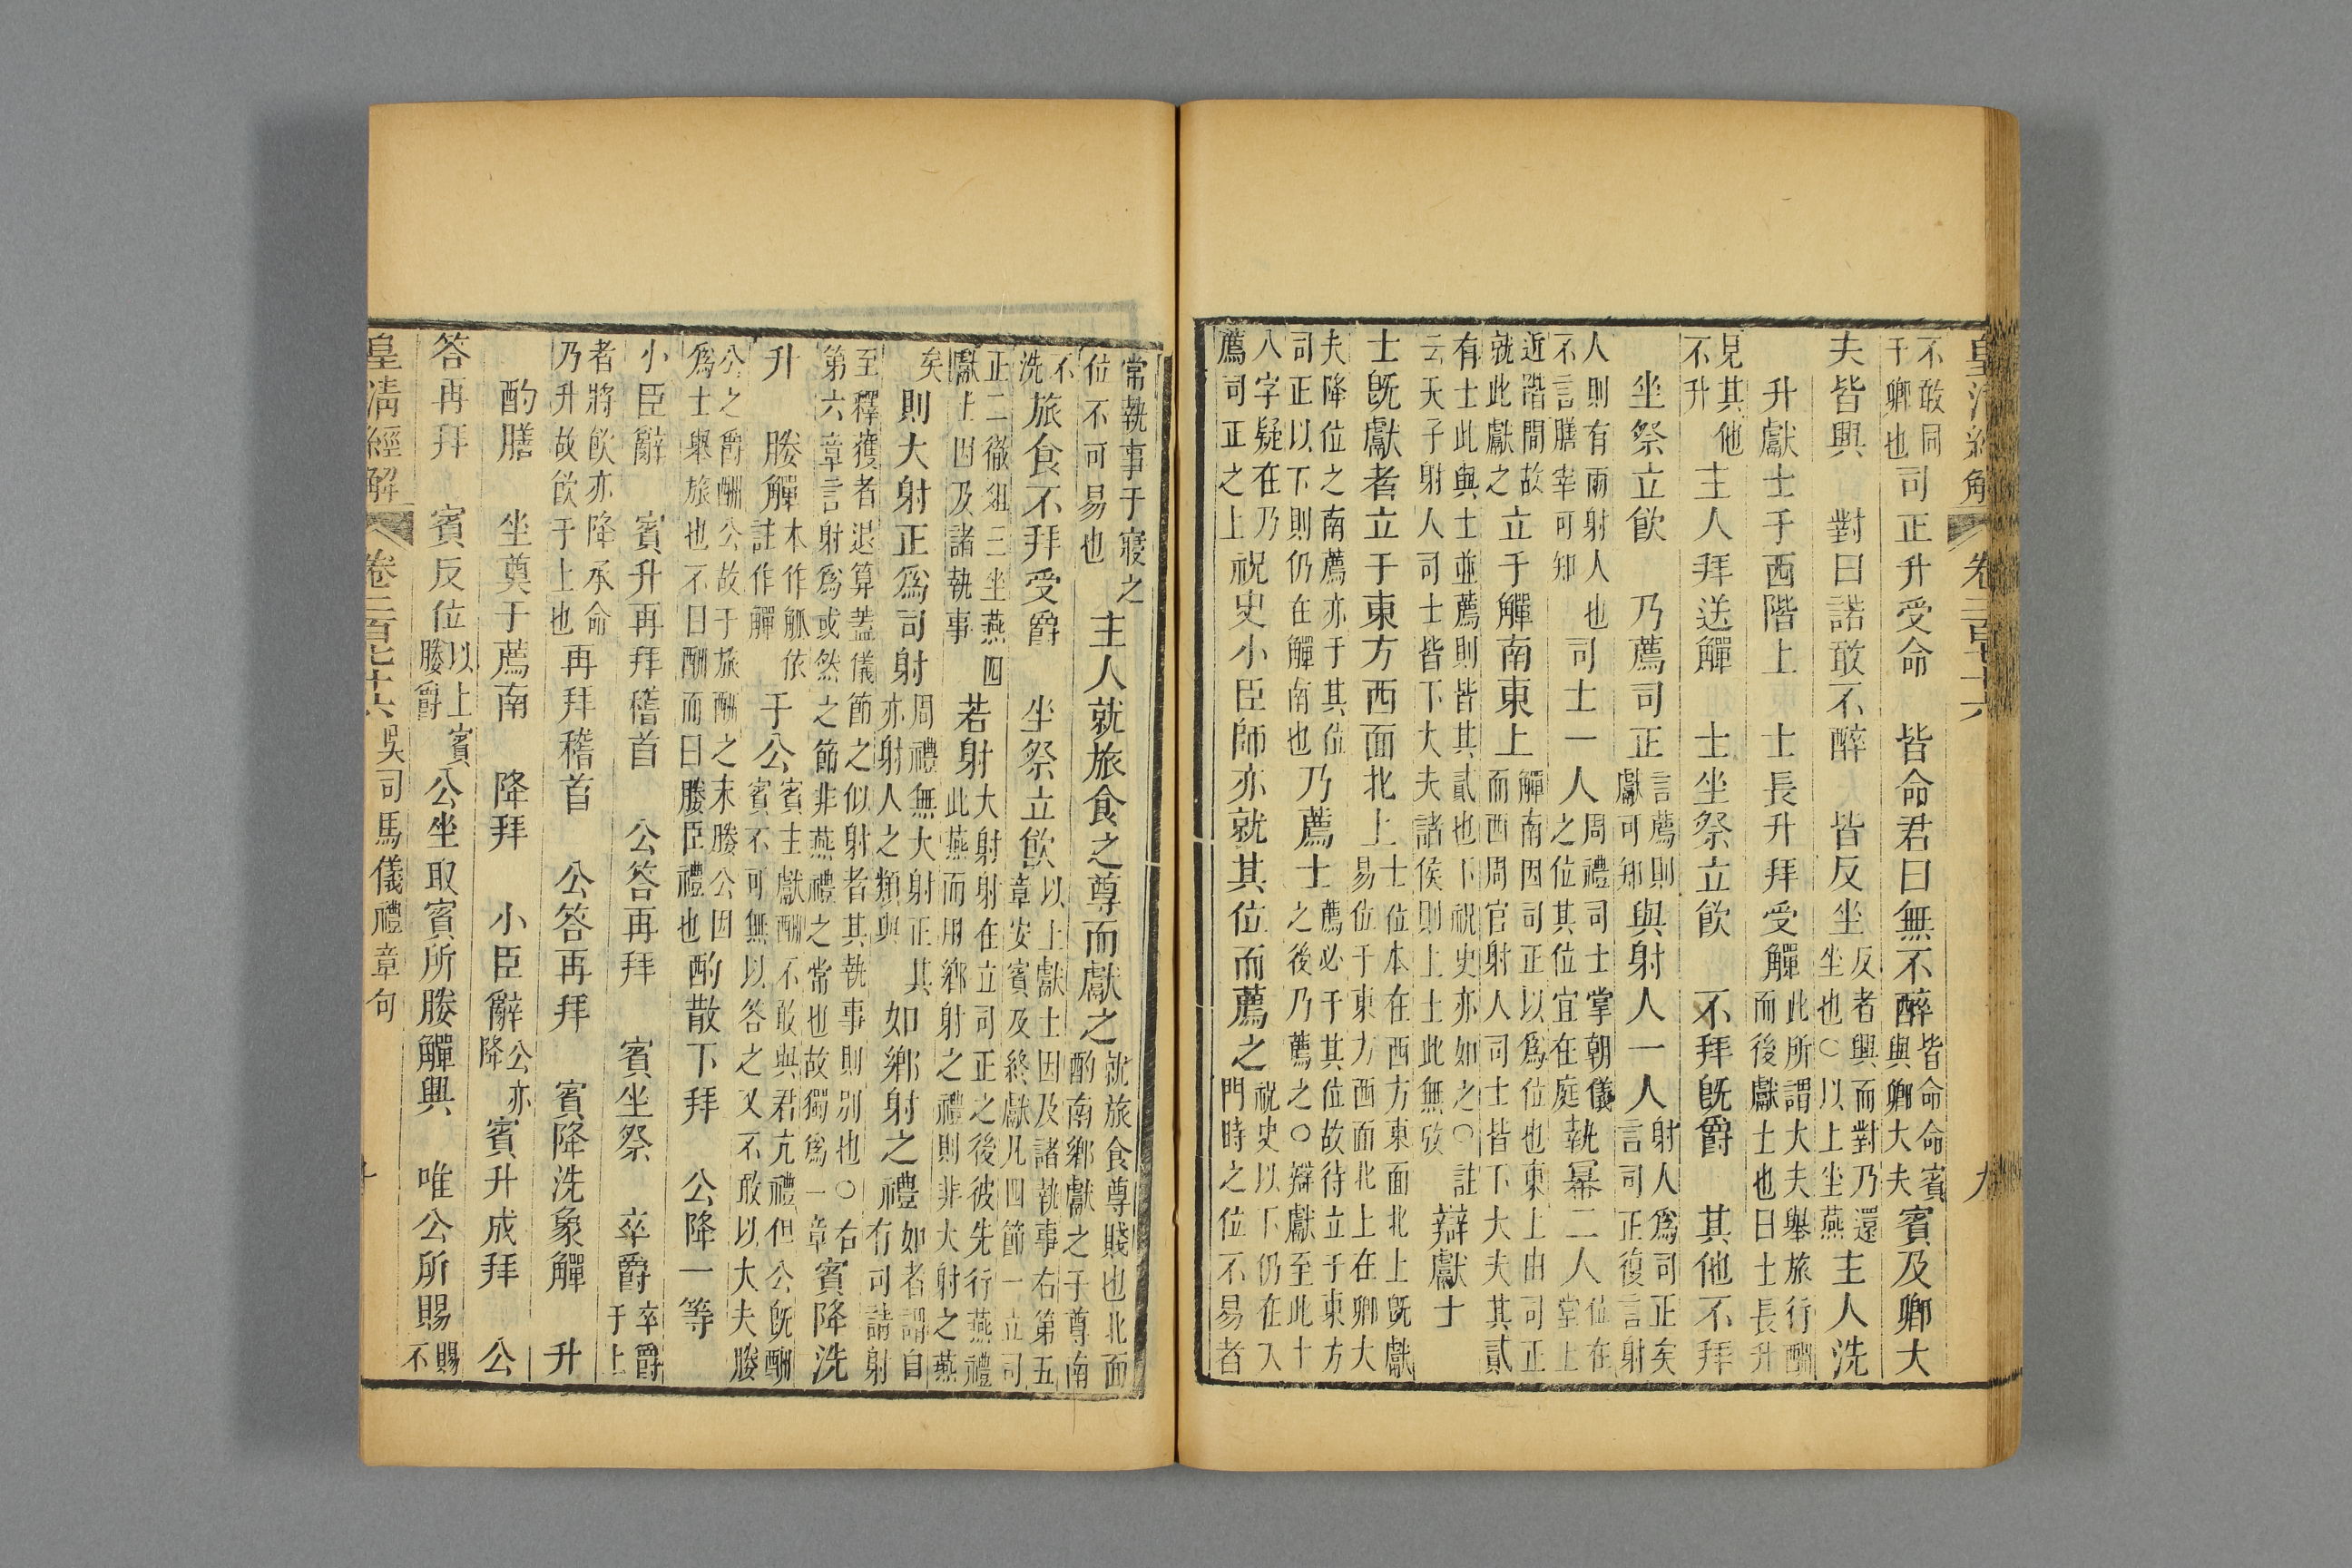 皇清經解 卷二百七十六 九
不敢同
于卿也
司正升受命 皆命君曰無不醉
皆命命賓
與卿大夫
賓及卿大
夫皆興 對曰諾敢不醉 皆反坐
反者興而對乃還
坐也○以上坐燕
主人洗
升獻士于西階上 士長升拜受觶
此所謂大夫舉旅行酬
而後獻士也曰士長升
見其他
不升
主人拜送觶 士坐祭立飲 不拜既爵 其他不拜
坐祭立飲 乃薦司正
言薦則
獻可知
與射人一人
射人爲司正矣
言司正復言射
人則有兩射人也
不言膳宰可知
司士一人
周禮司士掌朝儀
之位其位宜在庭
執冪二人
位在
堂上
近階間故
就此獻之
立于觶南東上
觶南因司正以爲位也東上由司正
而西周官射人司士皆下大夫其貳
有士此與士並薦則皆其貳也下祝史亦如之○註
云天子射人司士皆下大夫諸侯則上士此無攷
辯獻士
士既獻者立于東方西面北上
士位本在西方東面北上既獻
易位于東方西面北上在卿大
夫降位之南薦亦于其位
司正以下則仍在觶南也
乃薦士
薦必于其位故待立于東方
之後乃薦之○辯獻至此十
八字疑在乃
薦司正之上
祝史小臣師亦就其位而薦之
祝史以下仍在入
門時之位不易者
常執事于寢之
位不可易也
主人就旅食之尊而獻之
就旅食尊賤也北面
酌南鄉獻之于尊南
不
洗
旅食不拜受爵 坐祭立飲
以上獻士因及諸執事右第五
章安賓及終獻凡四節一立司
正二徹俎三坐燕四
獻士因及諸執事
若射
大射射在立司正之後彼先行燕禮
此燕而用鄉射之禮則非大射之燕
矣
則大射正爲司射
周禮無大射正其
亦射人之類與
如鄉射之禮
如者謂自
有司請射
至釋獲者退算蓋儀節之似射者其執事則別也○右
第六章言射爲或然之節非燕禮之常也故獨爲一章
賓降洗
升 媵觶
本作觚依
註作觶
于公
賓主獻酬不敢與君亢禮但公既酬
賓不可無以答之又不敢以大夫媵
公之爵酬公故于旅酬之末媵公因
爲士舉旅也不曰酬而曰媵臣禮也
酌散下拜 公降一等
小臣辭 賓升再拜稽首 公答再拜 賓坐祭 卒爵
卒爵
于上
者將飲亦降承命
乃升故飲于上也
再拜稽首 公答再拜 賓降洗象觶 升
酌膳 坐奠于薦南 降拜 小臣辭
公亦
降
賓升成拜 公
答再拜 賓反位
以上賓
媵爵
公坐取賓所媵觶興 唯公所賜
賜
不
皇清經解 卷二百七十六 吳司馬儀禮章句